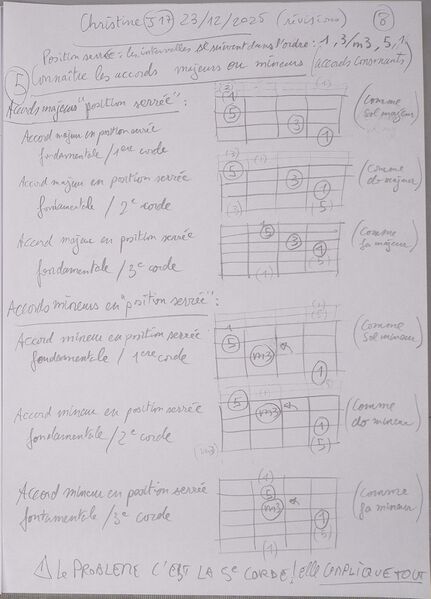 Christine J17 23/12/2025 (révisions) 8
Position serrée : les intervalles se suivent dans l'ordre : 1, 3/m3, 5, 1
5 Connaître les accords majeurs ou mineurs (accords consonants)
Accords majeurs "position serrée" :
Accord majeur en position serrée
fondamentale / 1ere corde
(3) 1 5 3 1
(comme sol majeur)
Accord majeur en position serrée
fondamentale / 2e corde
(3) (1) 5 3 1 (3) (5)
(comme do majeur)
Accord majeur en position serrée
fondamentale / 3e corde
5 3 1 (5) (1)
(comme fa majeur)
Accords mineurs en "position serrée" :
Accord mineur en position serrée
fondamentale / 1ere corde
(1) (5) 1 5 m3 1
(comme sol mineur)
Accord mineur en position serrée
fondamentale / 2e corde
(1) 5 m3 1 (5) (m3)
(comme do mineur)
Accord mineur en position serrée
fontamentale / 3e corde
(1) 5 m3 1 (5) (1)
(comme fa mineur)
LE PROBLEME C'EST LA 5e CORDE ! elle COMPLIQUE TOUT